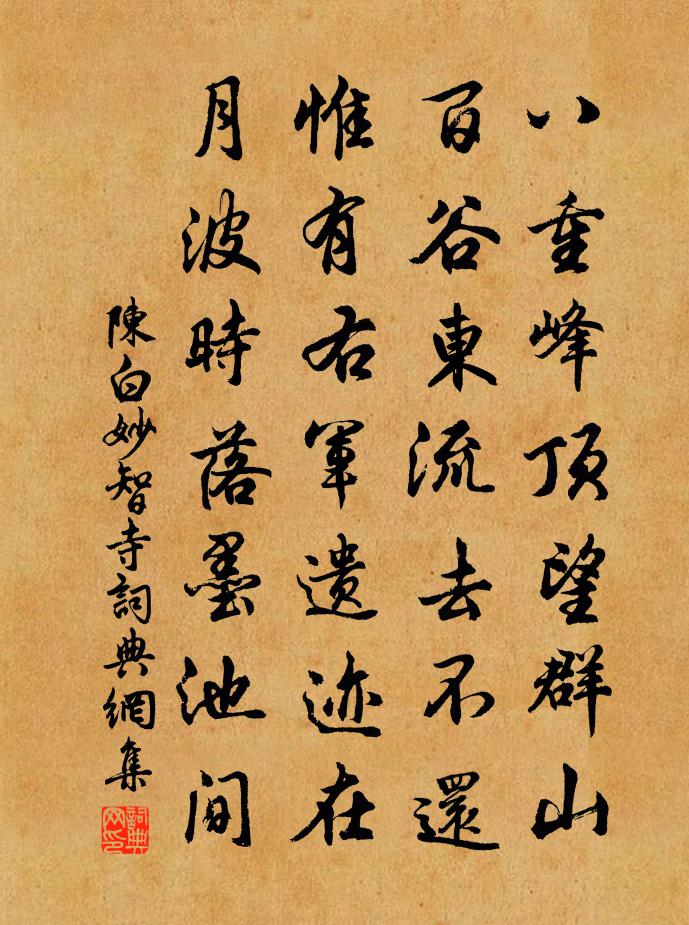 八重峰頂望群山
百谷東流去不還
惟有右軍遺迹在
月波時落墨池间
陳白妙智寺詞典網集
詞典網印